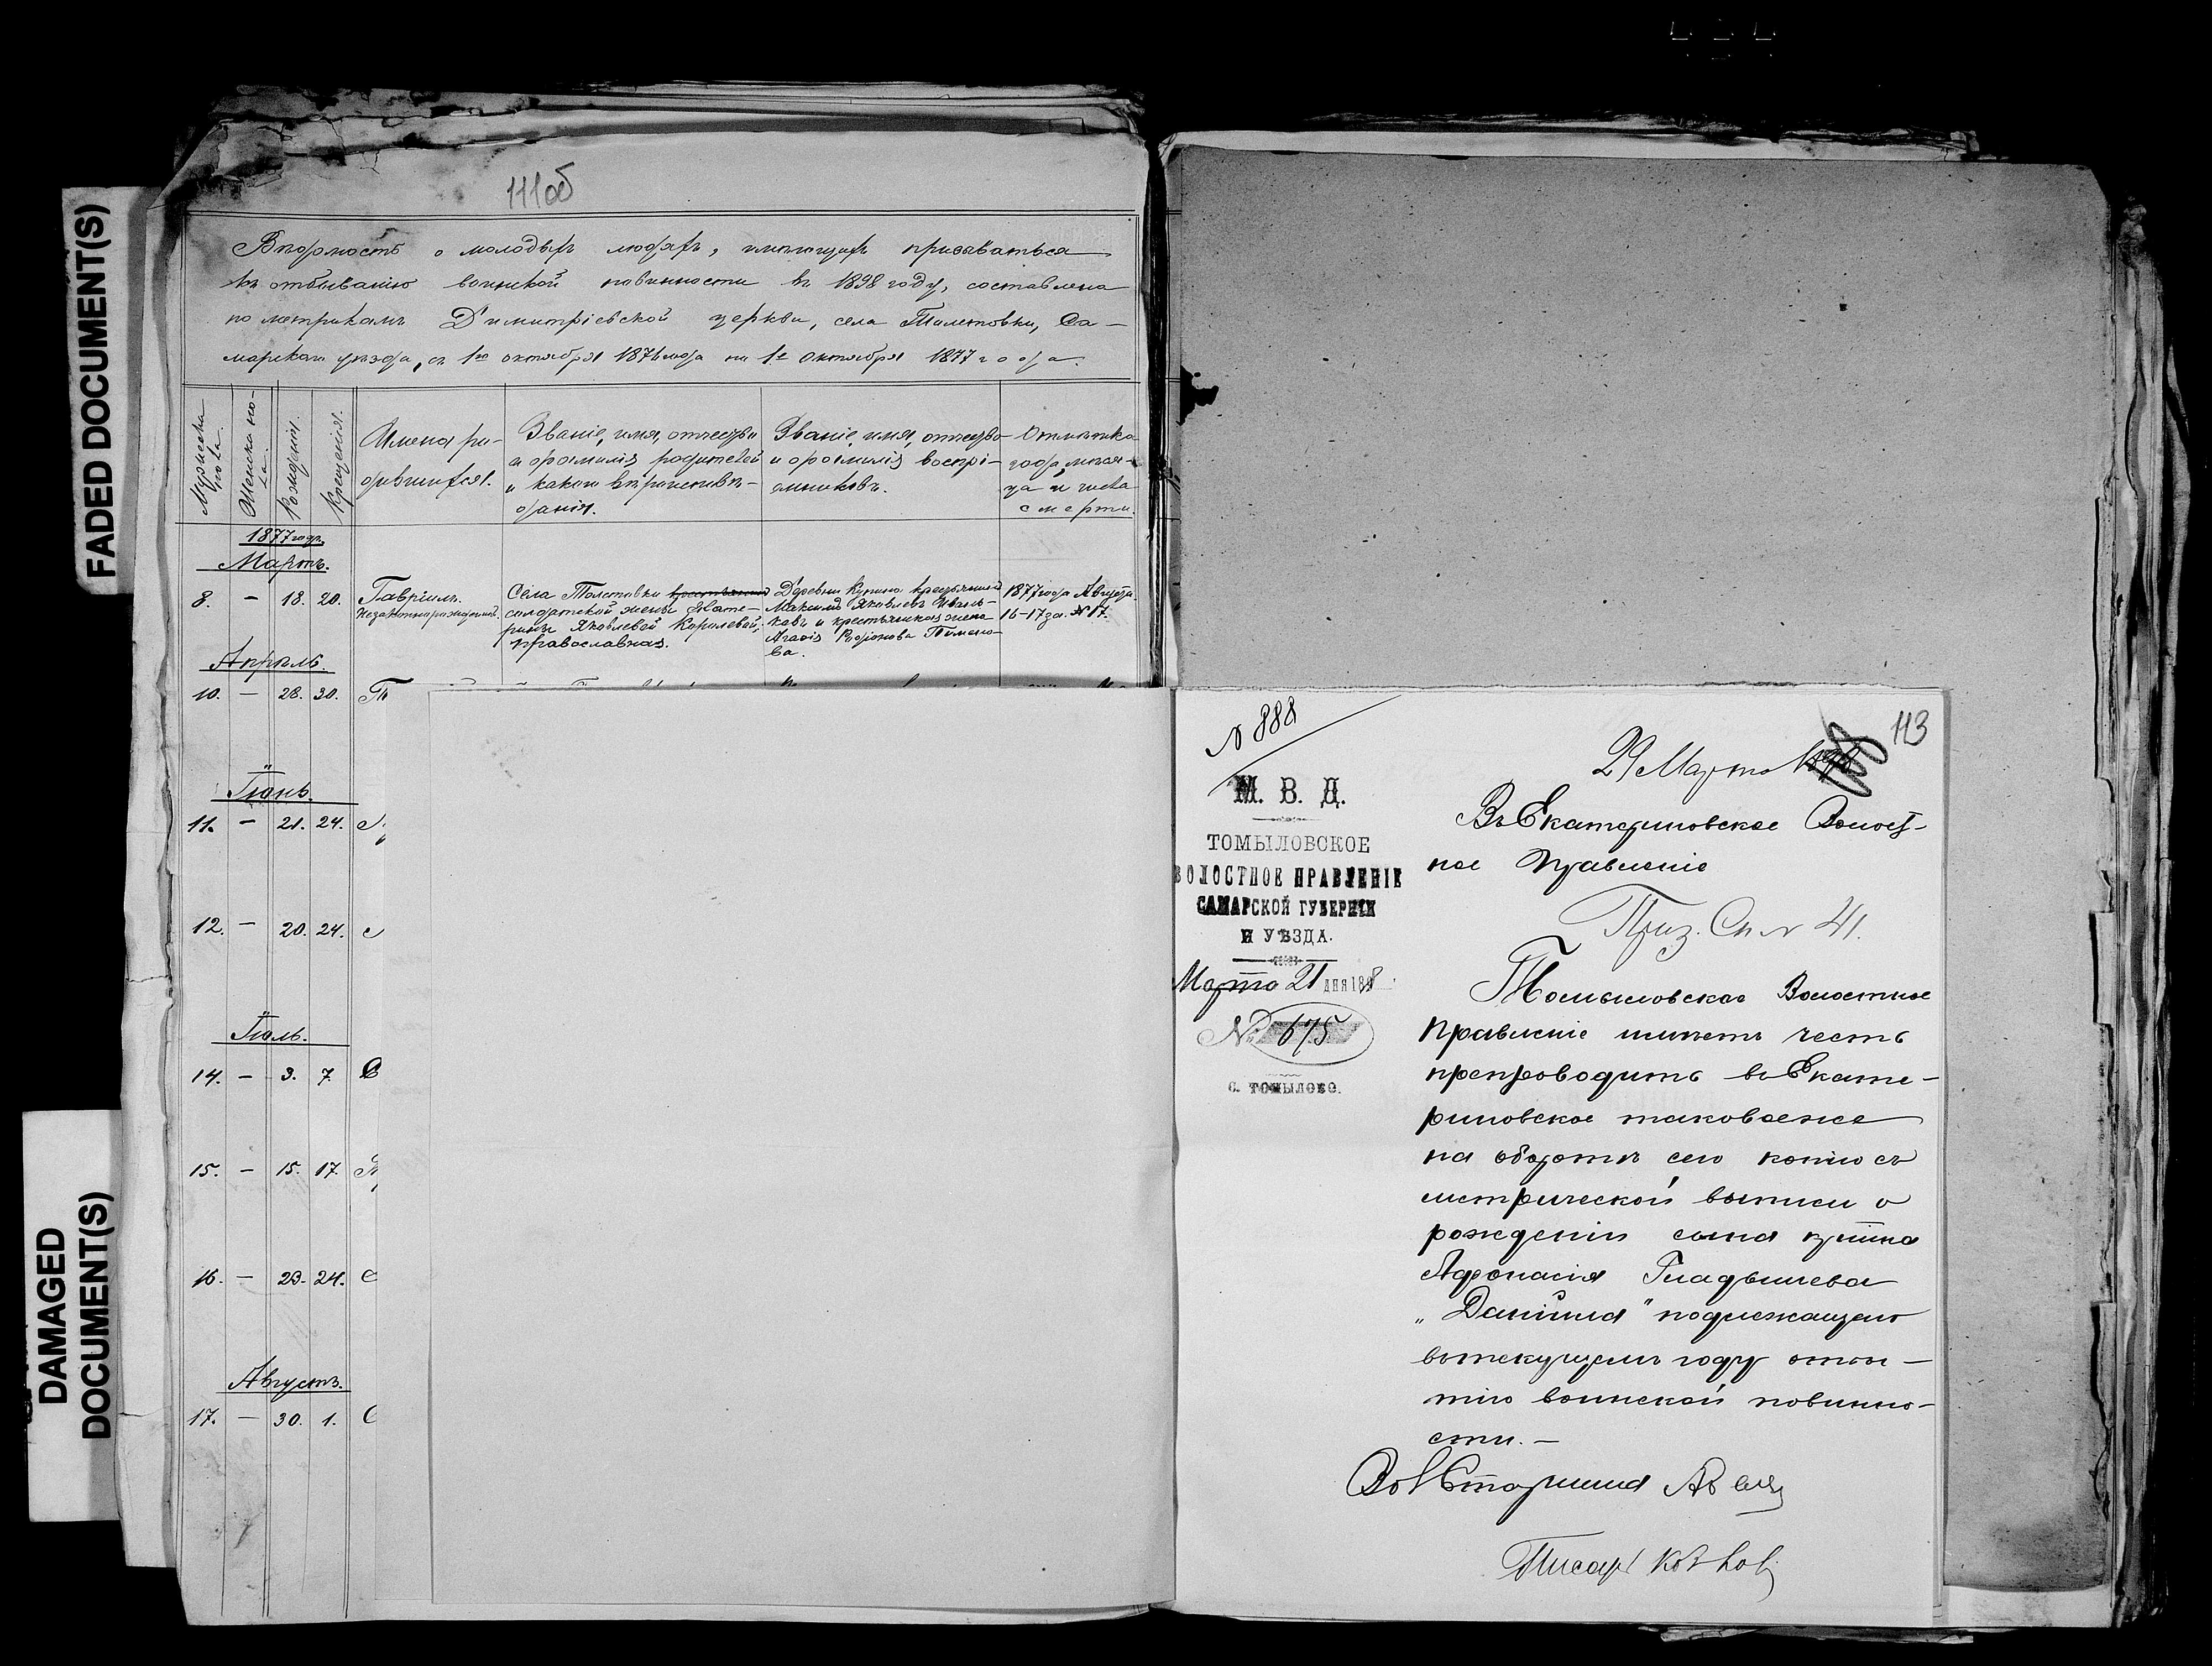 FADED DOCUMENT(S)
DAMAGED
DOCUMENT(S)
111об
Вѣдомость о молодыхъ людяхъ, имѣющихъ призываться
къ отбыванію воинской повинности въ 1898 году, составлена
по метрикамъ Димитріевской церкви, села Толстовки, Са-
марскаго уѣзда, съ 1го октября 1876 года по 1е октября 1877 года.
Мужеска пола.
Женска по-
ла.
Рожденія.
Крещенія.
Имена ро-
дившихся.
Званіе, имя, отчество
и фамилія родителей
и какого вѣроисповѣ-
данія.
Званіе, имя, отчество
и фамилія воспрі-
емниковъ.
Отмѣтка
года, мѣся-
ца и числа
смерти.
1877 годъ.
Мартъ.
8. - 18. 20.
Гавріилъ.
Незаконнорожденный.
Села Толстовки крестьянина
солдатской жены Екате-
рины Яковлевой Королевой,
православная.
Деревни крестьянинъ
Максимъ Яковлевъ
и крестьянская жена
ва.
1877 года Августа
16-17 за № 17.
Апрѣль.
10. - 28. 30.
Іюнь.
11. - 21. 24.
12. - 20. 24.
Іюль.
14. - 3. 7.
15. - 15. 17.
16. - 23. 24.
Августъ.
17. - 30. 1.
N 888
М. В. Д.
ТОМЫЛОВСКОЕ
ВОЛОСТНОЕ ПРАВЛЕНІЕ
САМАРСКОЙ ГУБЕРНІИ
И УѢЗДА.
Марта 21 дня 1898
№ 675
С. ТОМЫЛОВО.
113
29 Марта 1898
Въ Екатериновское Волост-
ное Правленіе
Приз. Сп. № 41.
Томыловское Волостное
Правленіе имѣетъ честь
препроводить въ Екате-
риновское таковоеже
на оборотѣ сего копію съ
метрической выписи о
рожденіи сына купца
Афонасія Гладышева
„Даніила" подлежащаго
въ текущемъ году отбы-
тію воинской повинно-
сти. -
Вол Старшина
Писарь